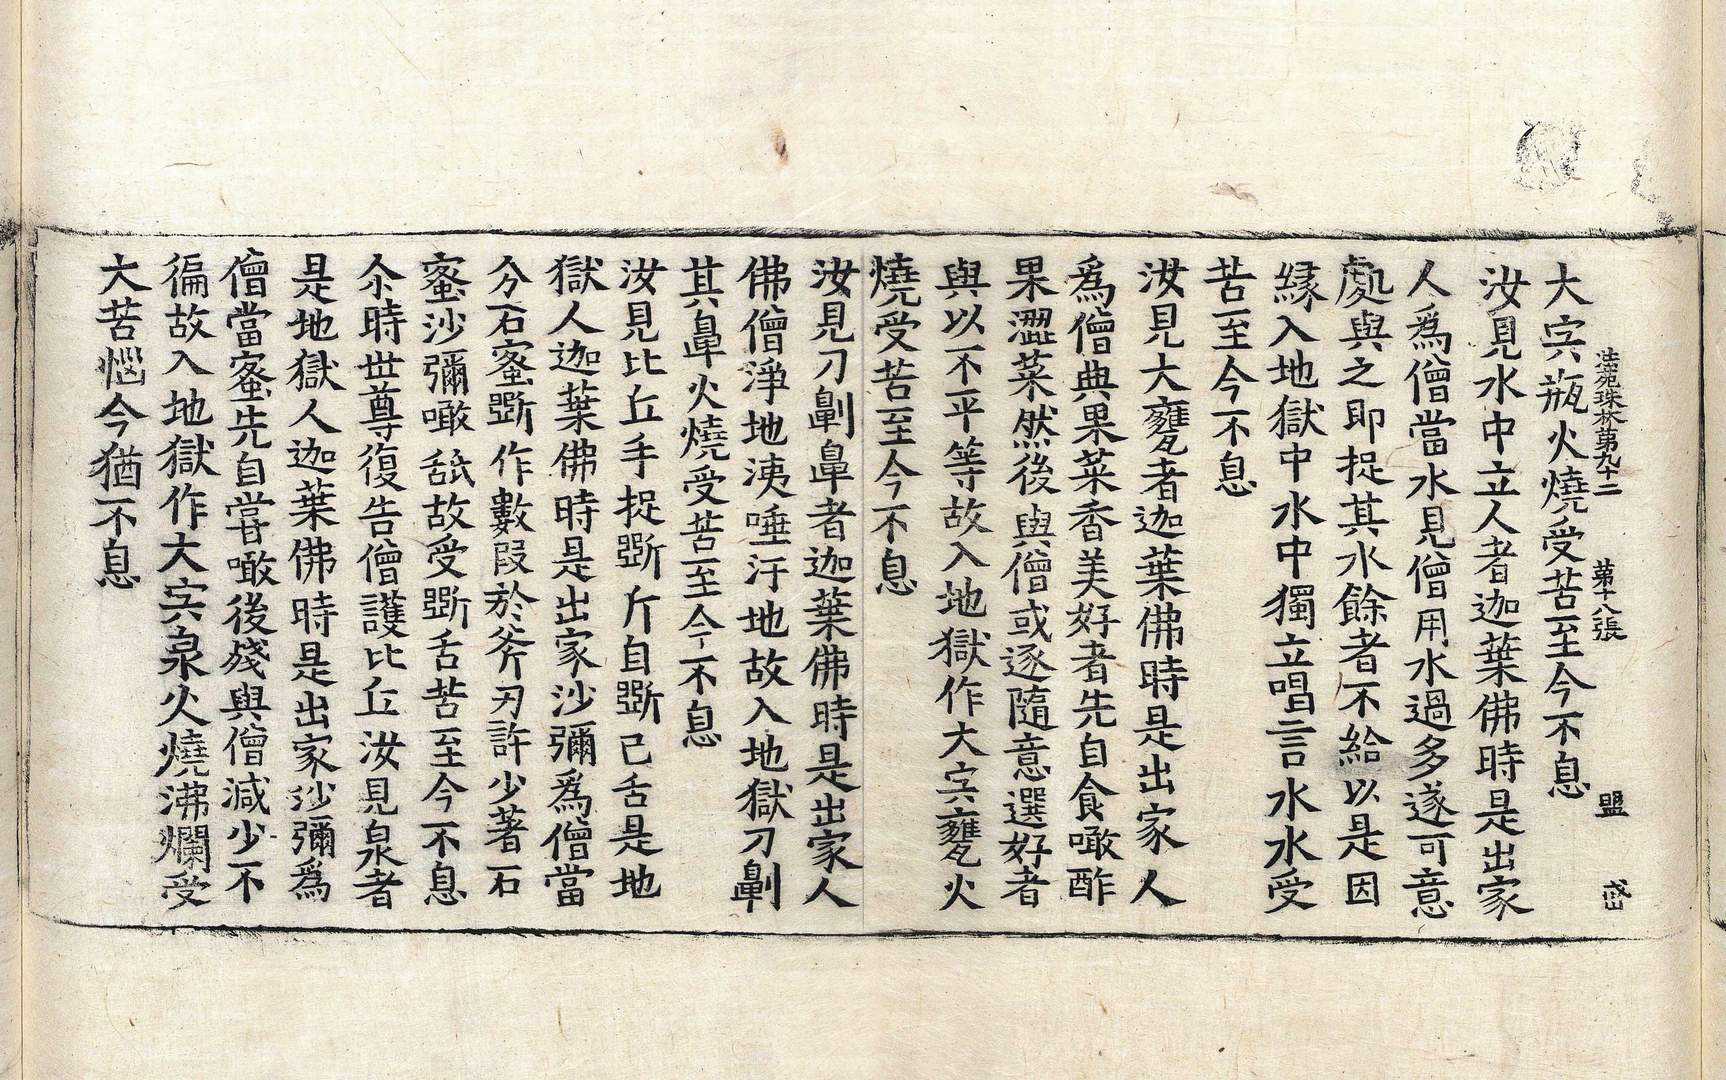 法苑珠林第九十二　第十八張　盟　岱
大宍瓶火燒受苦至今不息
汝見水中立人者迦葉佛時是出家
人爲僧當水見僧用水過多遂可意
處與之即捉其水餘者不給以是因
緣入地獄中水中獨立唱言水水受
苦至今不息
汝見大甕者迦葉佛時是出家人
爲僧典果菜香美好者先自食噉酢
果澀菜然後與僧或逐隨意選好者
與以不平等故入地獄作大宍甕火
燒受苦至今不息
汝見刀劓鼻者迦葉佛時是出家人
佛僧淨地洟唾汙地故入地獄刀劓
其鼻火燒受苦至今不息
汝見比丘手捉斲斤自斲己舌是地
獄人迦葉佛時是出家沙彌爲僧當
分石蜜斲作數段於斧刃許少著石
蜜沙彌噉舐故受斲舌苦至今不息
尒時世尊復告僧護比丘汝見泉者
是地獄人迦葉佛時是出家沙彌爲
僧當蜜先自嘗噉後殘與僧減少不
徧故入地獄作大宍泉火燒沸爛受
大苦惱今猶不息